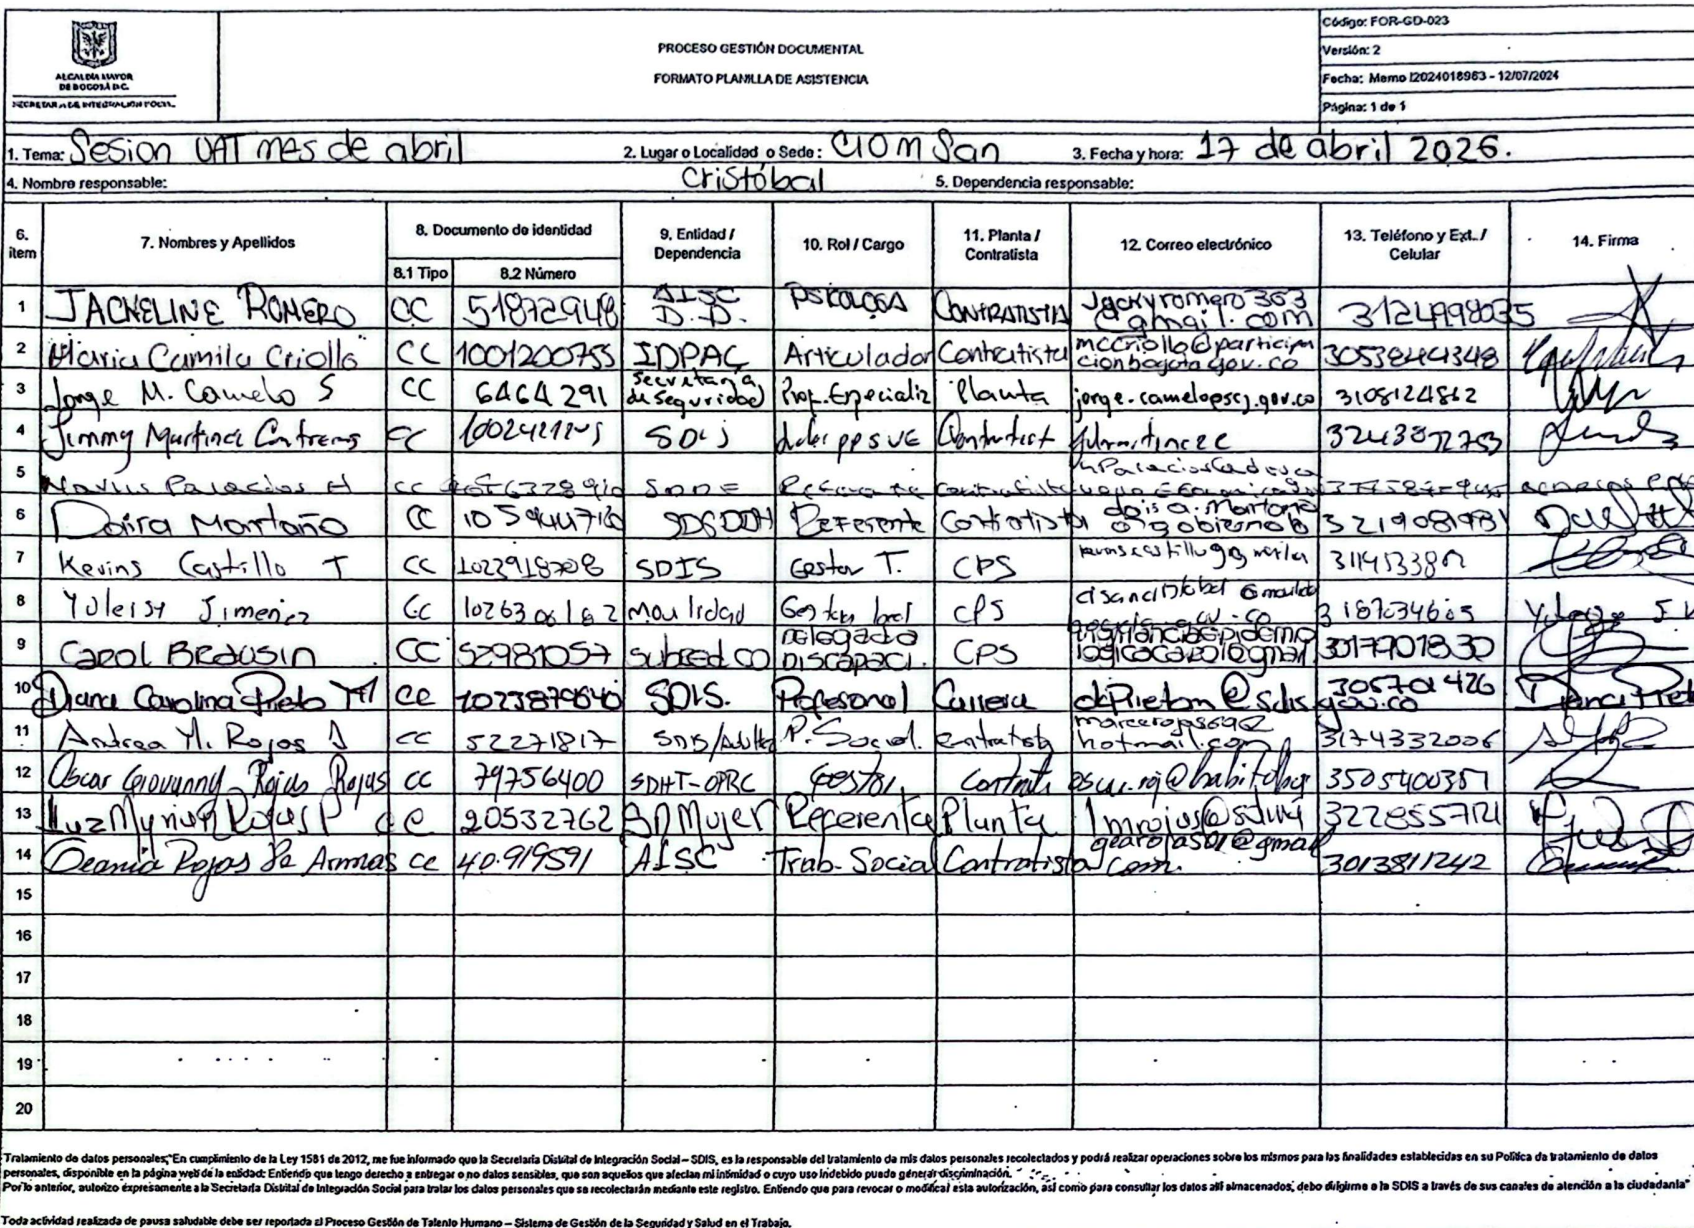 ALCALDÍA MAYOR
DE BOGOTÁ D.C.
SECRETARÍA DE INTEGRACIÓN SOCIAL
PROCESO GESTIÓN DOCUMENTAL
FORMATO PLANILLA DE ASISTENCIA
Código: FOR-GD-023
Versión: 2
Fecha: Memo I2024018963 - 12/07/2024
Página: 1 de 1
1. Tema: Sesion UAT mes de abril 2. Lugar o Localidad o Sede: CIOM San Cristóbal 3. Fecha y hora: 17 de abril 2026.
4. Nombre responsable: 5. Dependencia responsable:
6. item 7. Nombres y Apellidos 8. Documento de identidad 8.1 Tipo 8.2 Número 9. Entidad / Dependencia 10. Rol / Cargo 11. Planta / Contratista 12. Correo electrónico 13. Teléfono y Ext. / Celular 14. Firma
1 JACKELINE ROMERO CC 51872948 AISC D.D. PSICOLOGA CONTRATISTA Jackyromero363@gmail.com
2 Maria Camila Criollo CC 1001200755 IDPAC Articulador Contratista mccriollo@participacionbogota.gov.co 3053844348
3 Jorge M. Camelo S CC 6464291 Secretaria de Seguridad Prof. Especializ Planta jorge.camelo@scj.gov.co 3108124862
4 Jimmy Martinez Contreras CC SDIS Contratist
5 Palacios H CC SDDE Contratista
6 Daira Montaño CC SDSDDH Referente Contratista 3219081931
7 Kevins Castillo T CC 1023918708 SDIS Gestor T. CPS
8 Yuleisy Jimenez CC 1026306162 Movilidad Gestor local CPS 3187034605
9 CAROL BRAUSIN CC 52981057 Subred CO Delegada Discapaci. CPS 3017901830
10 Diana Carolina Prieto M CC 1023879640 SDIS. Profesional Carrera dcprietom@sdis.gov.co
11 Andrea M. Rojas CC 52271817 SDIS/Adultez P. Social. Contratista hotmail.com 3174332006
12 Oscar Giovanny Rojas Rojas CC 79756400 SDHT-OPRC Gestor Contrati 3505400357
13 Luz Myriam Rojas P CC 20532762 SDMujer Referenta Planta 3228557121
14 Geania Rojas De Armas CC 40.919591 AISC Trab. Social Contratista gearojas01@gmail.com. 3013811242
15
16
17
18
19
20
Tratamiento de datos personales;"En cumplimiento de la Ley 1581 de 2012, me fue informado que la Secretaría Distrital de Integración Social – SDIS, es la responsable del tratamiento de mis datos personales recolectados y podrá realizar operaciones sobre los mismos para las finalidades establecidas en su Política de tratamiento de datos
personales, disponible en la página web de la entidad; Entiendo que tengo derecho a entregar o no datos sensibles, que son aquellos que afectan mi intimidad o cuyo uso indebido puede generar discriminación.
Por lo anterior, autorizo expresamente a la Secretaría Distrital de Integración Social para tratar los datos personales que se recolectarán mediante este registro. Entiendo que para revocar o modificar esta autorización, así como para consultar los datos allí almacenados, debo dirigirme a la SDIS a través de sus canales de atención a la ciudadanía"
Toda actividad realizada de pausa saludable debe ser reportada al Proceso Gestión de Talento Humano – Sistema de Gestión de la Seguridad y Salud en el Trabajo.